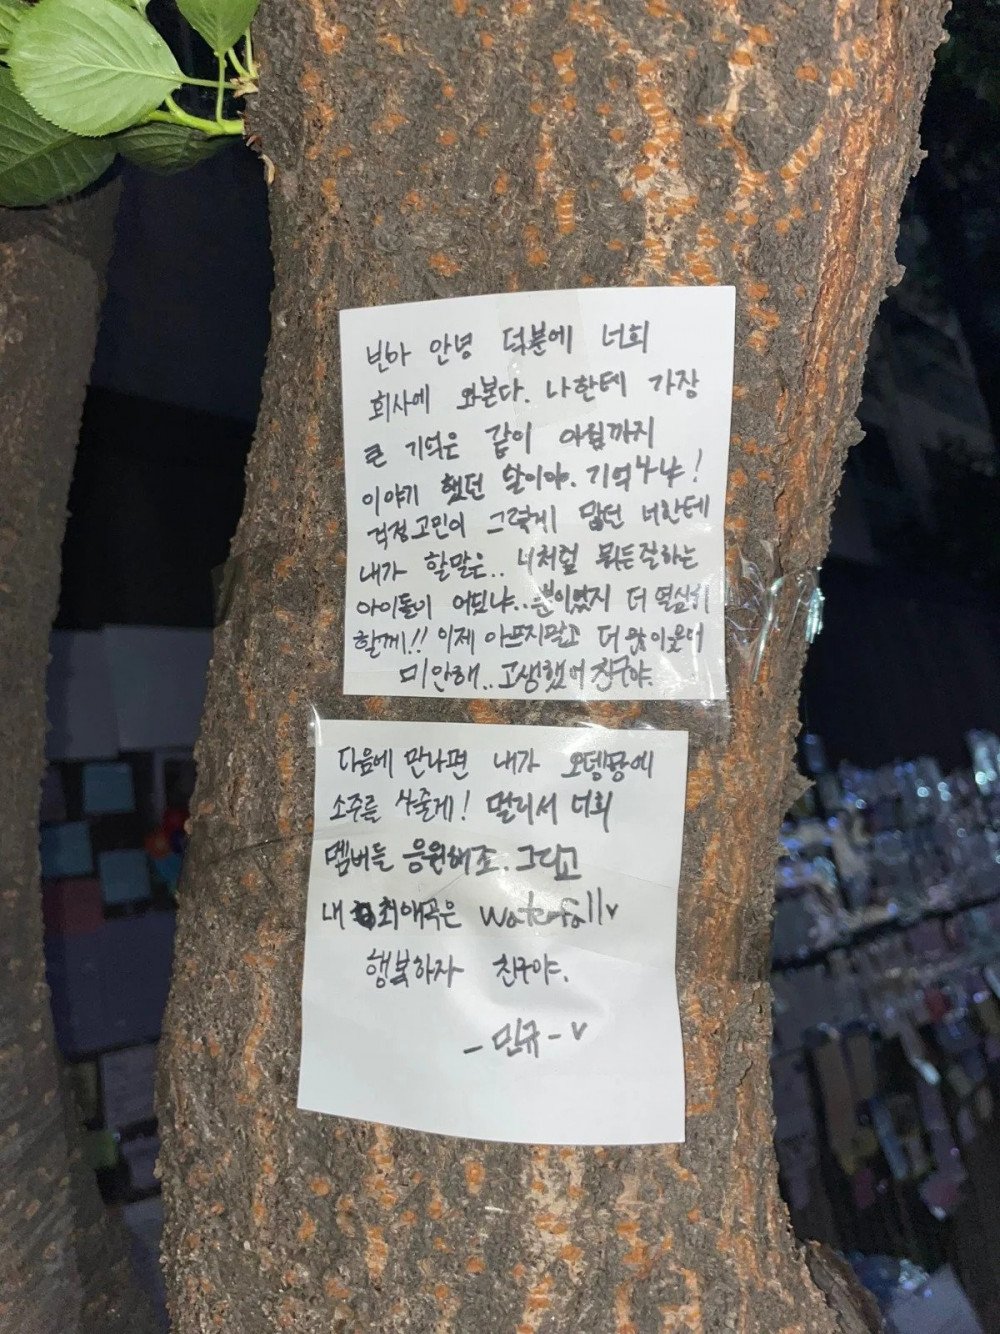 빈아 안녕 덕분에 너희
회사에 와본다. 나한테 가장
큰 기억은 같이 아침까지
이야기 했던 날이야. 기억나냐!
걱정고민이 그렇게 많던 너한테
내가 할말은.. 너처럼 뭐든잘하는
아이돌이 어딨냐.. 더 열심히
할께!! 이제 아프지말고 더
미안해.. 고생했어 친구야.
다음에 만나면 내가 오뎅탕에
소주를 사줄게! 멀리서 너희
멤버들 응원해조. 그리고
내 최애곡은 waterfall♥
행복하자 친구야.
- 민규 - ♥